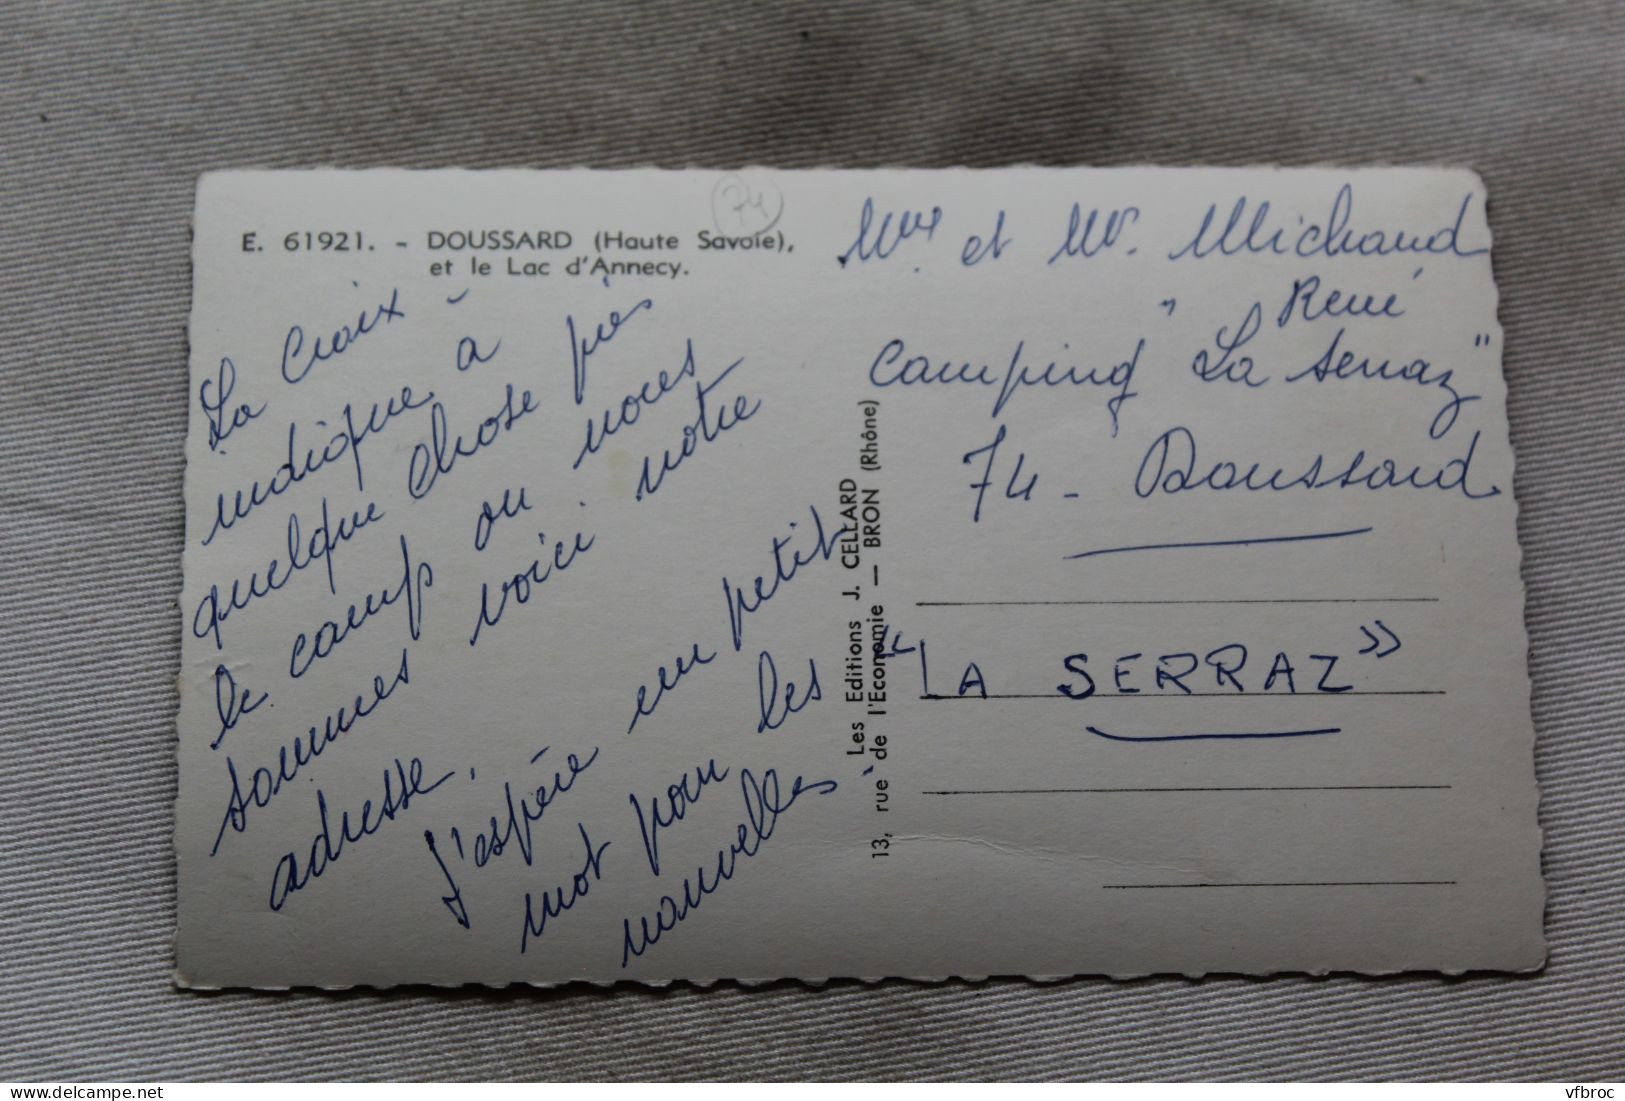 E. 61921. - DOUSSARD (Haute Savoie),
et le Lac d'Annecy.
74
La Croix
indique à
quelque chose près
le camp ou nous
sommes voici notre
adresse.
J'espère en petit
mot pour les
nouvelles
Les Editions J. CELLARD
13, rue de l'Economie — BRON (Rhône)
Mme et Mr. Michaud
René
Camping "La Serraz"
74 - Doussard
"LA SERRAZ"
© delcampe.net
vfbroc